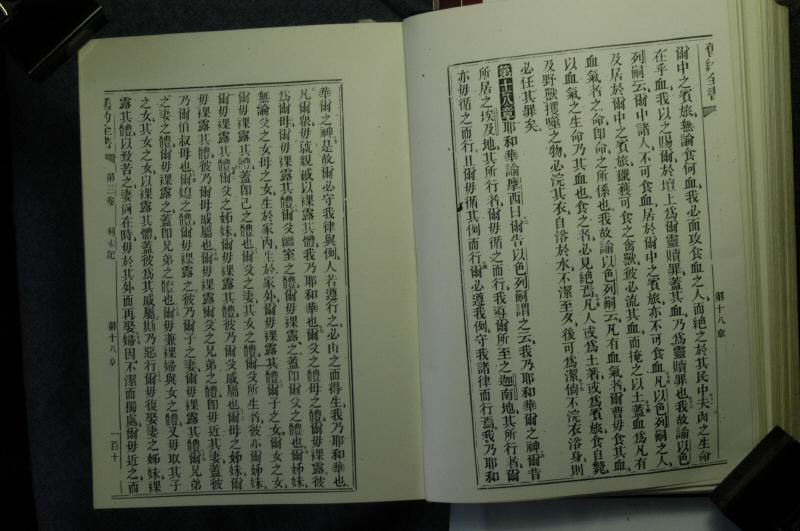 舊約全書
第十八章
爾中之賓旅無論食何血我必面攻食血之人而絕之於其民中夫肉之生命
在乎血我以之賜爾於壇上爲爾靈贖罪蓋其血乃爲靈贖罪也我故諭以色
列嗣云爾中諸人不可食血居於爾中之賓旅亦不可食血凡以色列嗣之人
及居於爾中之賓旅獵獲可食之禽獸彼必流其血而掩之以土蓋血爲凡有
血氣者之命卽命之所係也我故諭以色列嗣云凡有血氣者爾曹毋食其血
以血氣之生命乃其血也食之者必見絕焉凡人或爲土著或爲賓旅食自斃
及野獸攫噬之物必浣其衣自浴於水不潔至夕後可爲潔倘不浣衣浴身則
必任其罪矣
第十八章耶和華諭摩西曰爾告以色列嗣謂之云我乃耶和華爾之神爾昔
所居之埃及地其所行者爾毋循之而行我導爾所至之迦南地其所行者爾
亦毋循之而行且爾毋循其例而行爾必遵我例守我諸律而行焉我乃耶和
華爾之神是故爾必守我律與例人若遵行之必由之而得生我乃耶和華也
凡爾衆毋就親戚以裸露其體我乃耶和華也爾父之體爾母之體爾毋裸露彼
爲爾母爾毋裸露其體爾父繼室之體爾毋裸露蓋卽爾父之體也爾姊妹
無論父之女母之女生於家內生於家外爾毋裸露其體爾子之女爾女之女
爾毋裸露其體蓋卽己之體也爾父之妻其女爾父所生者彼亦爾姊妹
爾毋裸露其體爾父之姊妹爾毋裸露其體彼乃爾父戚屬也爾母之姊妹爾
毋裸露其體彼乃爾母戚屬也爾毋裸露爾父之兄弟之體卽毋近其妻蓋彼
乃爾伯叔母也爾媳之體爾毋裸露之彼乃爾子之妻爾毋裸露其體爾兄弟
之妻之體爾毋裸露之蓋卽爾兄弟之體也爾毋兼裸婦與女之體又毋取其子
之女其女之女以裸露其體蓋彼爲其戚屬斯乃惡行爾毋復娶妻之姊妹裸
露其體以致苦之妻尚在時毋於其外而再娶婦因不潔而獨處爾毋近之而
舊約全書 第三卷 利未記 第十八章 一百十